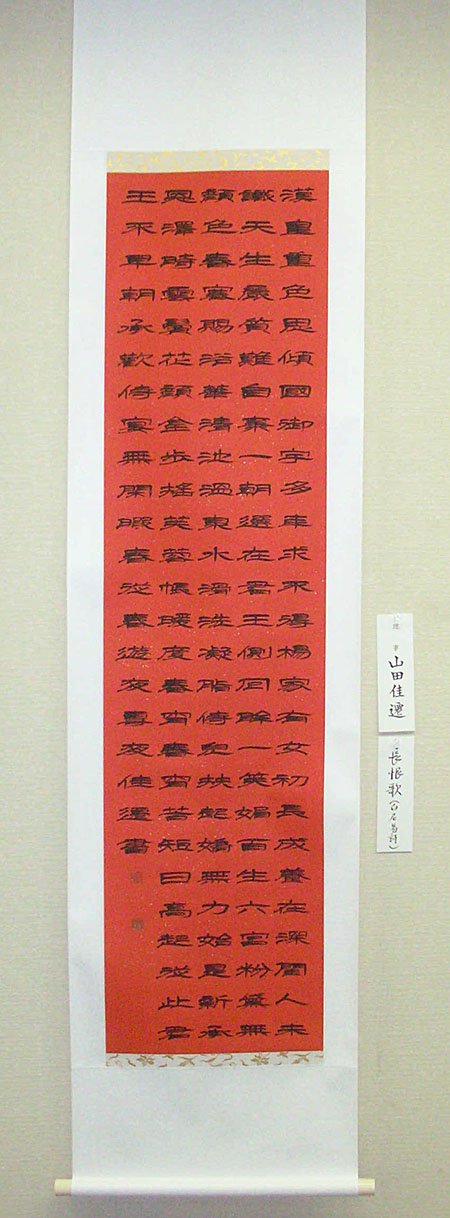 漢皇重色思傾國御宇多年求不得楊家有女初長成養在深閨人未
識天生麗質難自棄一朝選在君王側回眸一笑媚百生六宮粉黛無
顏色春寒賜浴華清池溫泉水滑洗凝脂侍兒扶起嬌無力始是新承
恩澤時雲鬢花顏金步搖芙蓉帳暖度春宵春宵苦短日高起從此君
王不早朝承歡侍宴無閑暇春從春遊夜專夜佳遷書
山田佳遷
長恨歌(白居易詩)